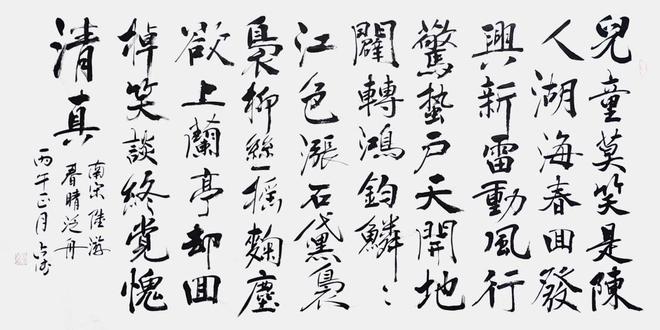 兒童莫笑是陳
人湖海春回發
興新雷動風行
驚蟄户天開地
闢轉鴻鈞鱗〻
江色漲石黛裊
裊柳絲搖麴塵
欲上蘭亭却回
棹笑談終覺愧
清真
南宋陸游
春晴泛舟
丙午正月